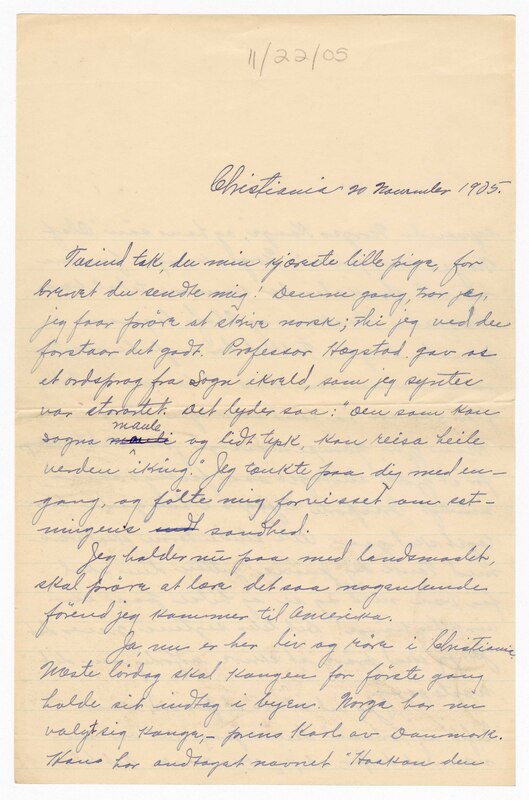 11/22/05
Christiania 20 November 1905.
Tusind tak, du min kjæreste lille pige, for
brevet du sendte mig! Denne gang, tror jeg,
jeg faar pröve at skive norsk; thi jeg ved du
forstaar det godt. Professor Hægstad gav os
et ordsprog fra Sogn ikveld, som jeg syntes
var storartet. Det lyder saa: "Den som kan
maule
sogna og lidt tysk, kan reisa heile
verden ikring." Jeg tænkte paa dig med en-
gang, og fölte mig forvisset om sæt-
ningens sandhed.
Jeg holder nu paa med landsmaalet,
skal pröve at lære det saa nogenlunde
förend jeg kommer til Amerika.
Ja, nu er her liv og röre i Christiania.
Næste lördag skal kongen for förste gang
holde sit indtog i byen. Norge har nu
valgt sig konge, – prins Karl av Danmark.
Hans har andtaget navnet "Haakon den